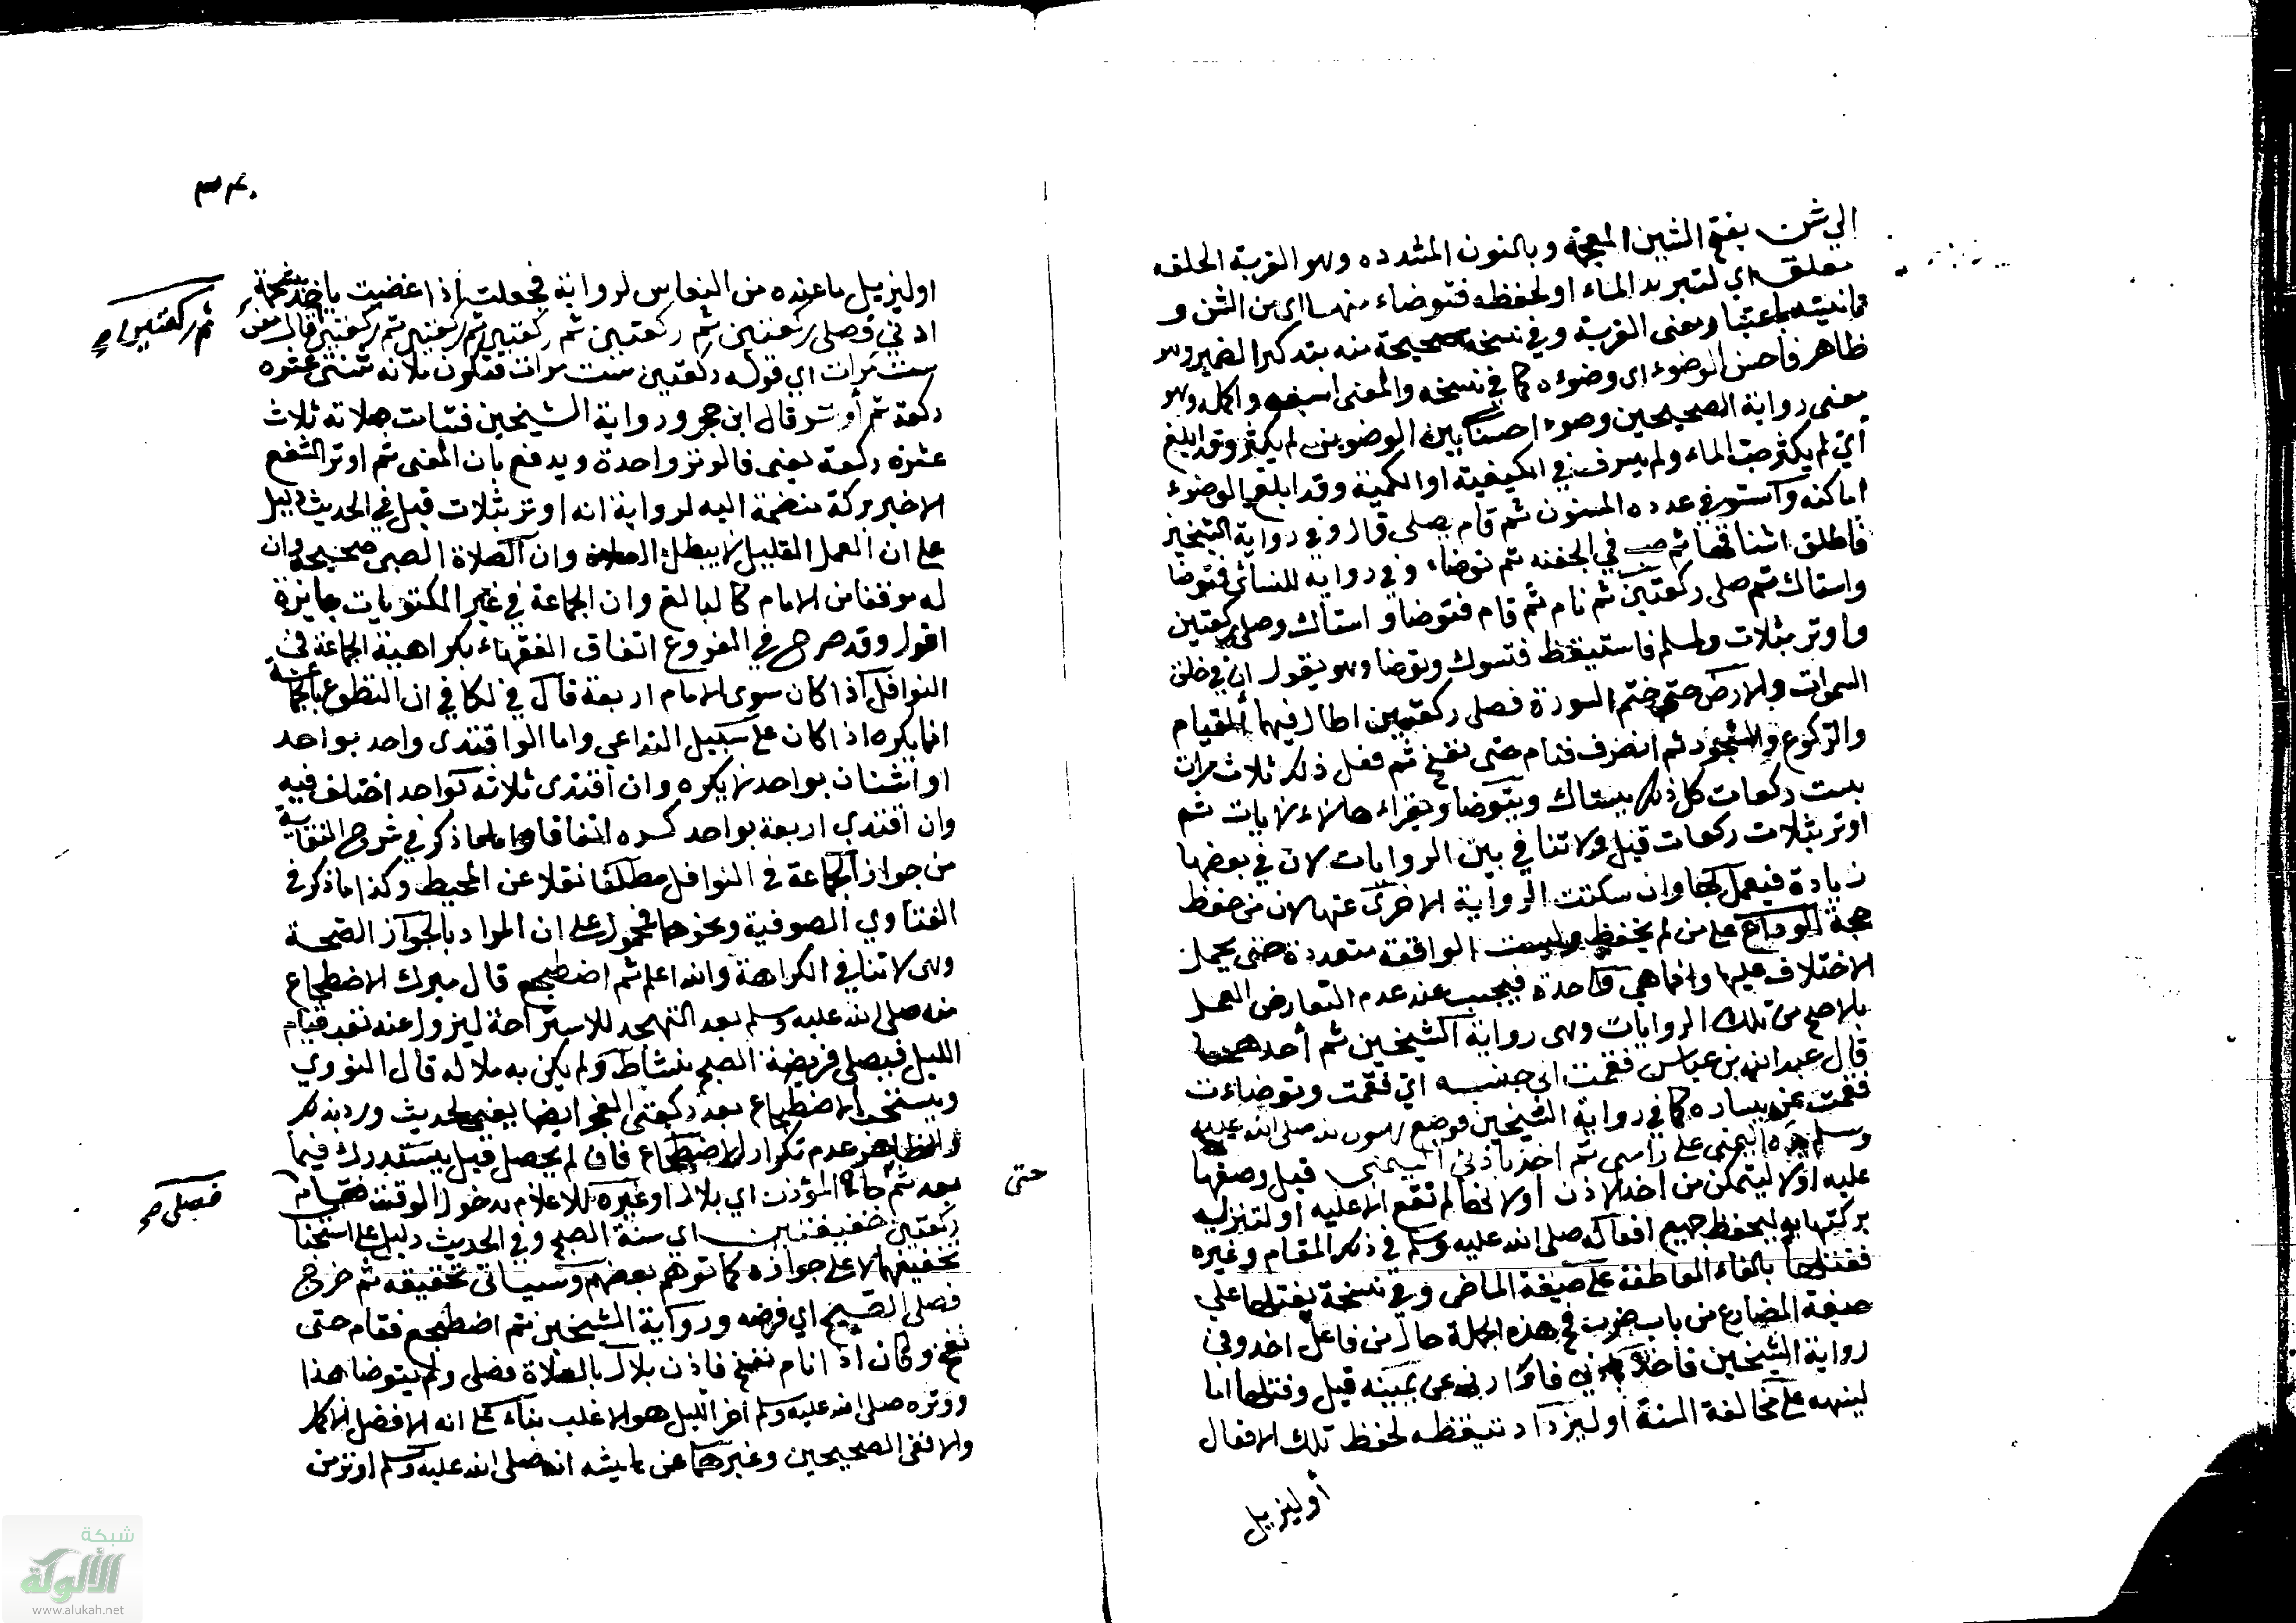 الي شن بفتح الشين المعجمة وبالنون المشدده وهو القربة الخلقه
معلق اي لتبريد الماء او لحفظه فتوضاء منها اي من الشن و
تانيثه باعتبار معنى القربة وفي نسخة صحيحة منه بتذكير الضمير وهو
ظاهر فاحسن الوضوء اي وضوءه كما في نسخه والمعنى اسبغه واكمله وهو
معنى رواية الصحيحين وضوء احسنا بين الوضوين لم يكثر وقد ابلغ
أي لم يكثر صب الماء ولم يسرف في الكيفية او الكمية وقد ابلغ الوضوء
اماكنه واستوفي عدده المسنون ثم قام يصلى قال وفي رواية الشيخين
فاطلق شناقها ثم صب في الجفنه ثم توضاء وفي رواية للنسائي فتوضا
واستاك ثم صلى ركعتين ثم نام ثم قام فتوضا و استاك وصلى ركعتين
واوتر بثلاث ولمسلم فاستيقظ فتسوك وتوضا وهو يقول ان في خلق
السموات والارض حتى ختم السورة فصلى ركعتين اطال فيهما القيام
والركوع والسجود ثم انصرف فنام حتى نفخ ثم فعل ذلك ثلاث مرات
بست ركعات كل ذلك يستاك ويتوضا ويقراء هاؤلاء الايات ثم
اوتر بثلاث ركعات قيل ولا تنافي بين الروايات لان في بعضها
زيادة فيعمل بها وان سكتت الرواية الاخرى عنها لان من حفظ
حجة على من لم يحفظ وليست الواقعة متعددة حتى يحمل
الاختلاف عليها وانما هي واحدة فيجب عند عدم التعارض العمل
بالاصح من تلك الروايات وهى رواية الشيخين ثم أحدهما
قال عبد الله بن عباس فقمت الى جنبه اي فقمت وتوضاءت
فقمت عن يساره كما في رواية الشيخين فوضع رسول الله صلى الله عليه
وسلم يده اليمنى على راسي ثم اخذ باذني اليمنى قيل وضعها
عليه اولا ليتمكن من اخذ الاذن او لانها لم تقع الا عليه او لتنزل
بركتها به ليحفظ جميع افعاله صلى الله عليه وسلم في ذلك المقام وغيره
ففتلها بالفاء العاطفة على صيغة الماضي وفي نسخة يفتلها على
صيغة المضارع من باب ضرب فهذه الجملة حال من فاعل اخذ وفي
رواية الشيخين فاخذ باذني فادارني عن يمينه قيل وفتلها اما
لينبهه على مخالفة السنة او ليزداد تيقظه لحفظ تلك الافعال
أو ليزيل
او ليزيل ما عنده من النعاس لرواية فجعلت اذا اغفيت ياخذ بشحمة
اذني فصلى ركعتين ثم ركعتين ثم ركعتين ثم ركعتين ثم ركعتين قال معن
ثم ركعتين صح
ست مرات اي قوله ركعتين ست مرات فتكون صلاته ثنتى عشره
ركعة ثم أوتر قال ابن حجر ورواية الشيخين فتتامت صلاته ثلاث
عشرة ركعة يعنى فالوتر واحدة ويدفع بان المعنى ثم اوتر الشفع
الاخير بركة منضمة اليه لرواية انه اوتر بثلاث قيل في الحديث دليل
على ان العمل القليل لا يبطل الصلاة وان الصلاة الصبى صحيحة وان
له موقفا من الامام كالبالغ وان الجماعة في غير المكتوبات جايزة
اقول وقد صرح في الفروع اتفاق الفقهاء بكراهية الجماعة في
النوافل اذا كان سوى الامام اربعة قال في الكافي ان التطوع بالجماعة
انما يكره اذا كان على سبيل التداعي واما لو اقتدى واحد بواحد
او اثنان بواحد لا يكره وان اقتدى ثلاثه بواحد اختلف فيه
وان اقتدي اربعة بواحد كره اتفاقا واما ما ذكر في شرح النقاية
من جواز الجماعة في النوافل مطلقا نقلا عن المحيط وكذا ما ذكر في
الفتاوي الصوفية ونحوهما فمحمول على ان المراد بالجواز الصحة
وهى لا تنافي الكراهة والله اعلم ثم اضطجع قال ميرك الاضطجاع
منه صلى الله عليه وسلم بعد التهجد للاستراحة ليزول عنه تعب قيام
الليل فيصلى فريضة الصبح بنشاط ولم يكن به ملاله قال النووي
ويستحب الاضطجاع بعد ركعتي الفجر ايضا يعنى لحديث ورد بذلك
والظاهر عدم تكرار الاضطجاع فان لم يحصل قبل يستدرك فيما
بعد ثم جاءه المؤذن اي بلال او غيره للاعلام بدخول الوقت فقام
حتى
فصلى صح
ركعتين خفيفتين اي سنة الصبح وفي الحديث دليل على استحباب
تخفيفها لا على جوازه كما توهم بعضهم وسياتى تحقيقه ثم خرج
فصلى الصبح اي فرضه ورواية الشيخين ثم اضطجع فقام حتى
نفخ وكان اذا نام نفخ فاذن بلال بالصلاة فصلى ولم يتوضا هذا
ووتره صلى الله عليه وسلم اخر الليل هو الاغلب بناء على انه الافضل الاكمل
والا ففى الصحيحين وغيرهما عن عايشه انه صلى الله عليه وسلم اوتر من
شبكة
الألوكة
www.alukah.net